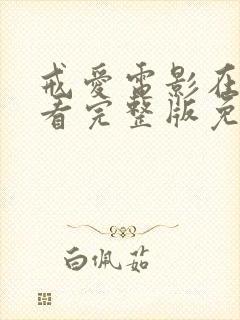 戒爱电影在
看完整版免
白佩茹